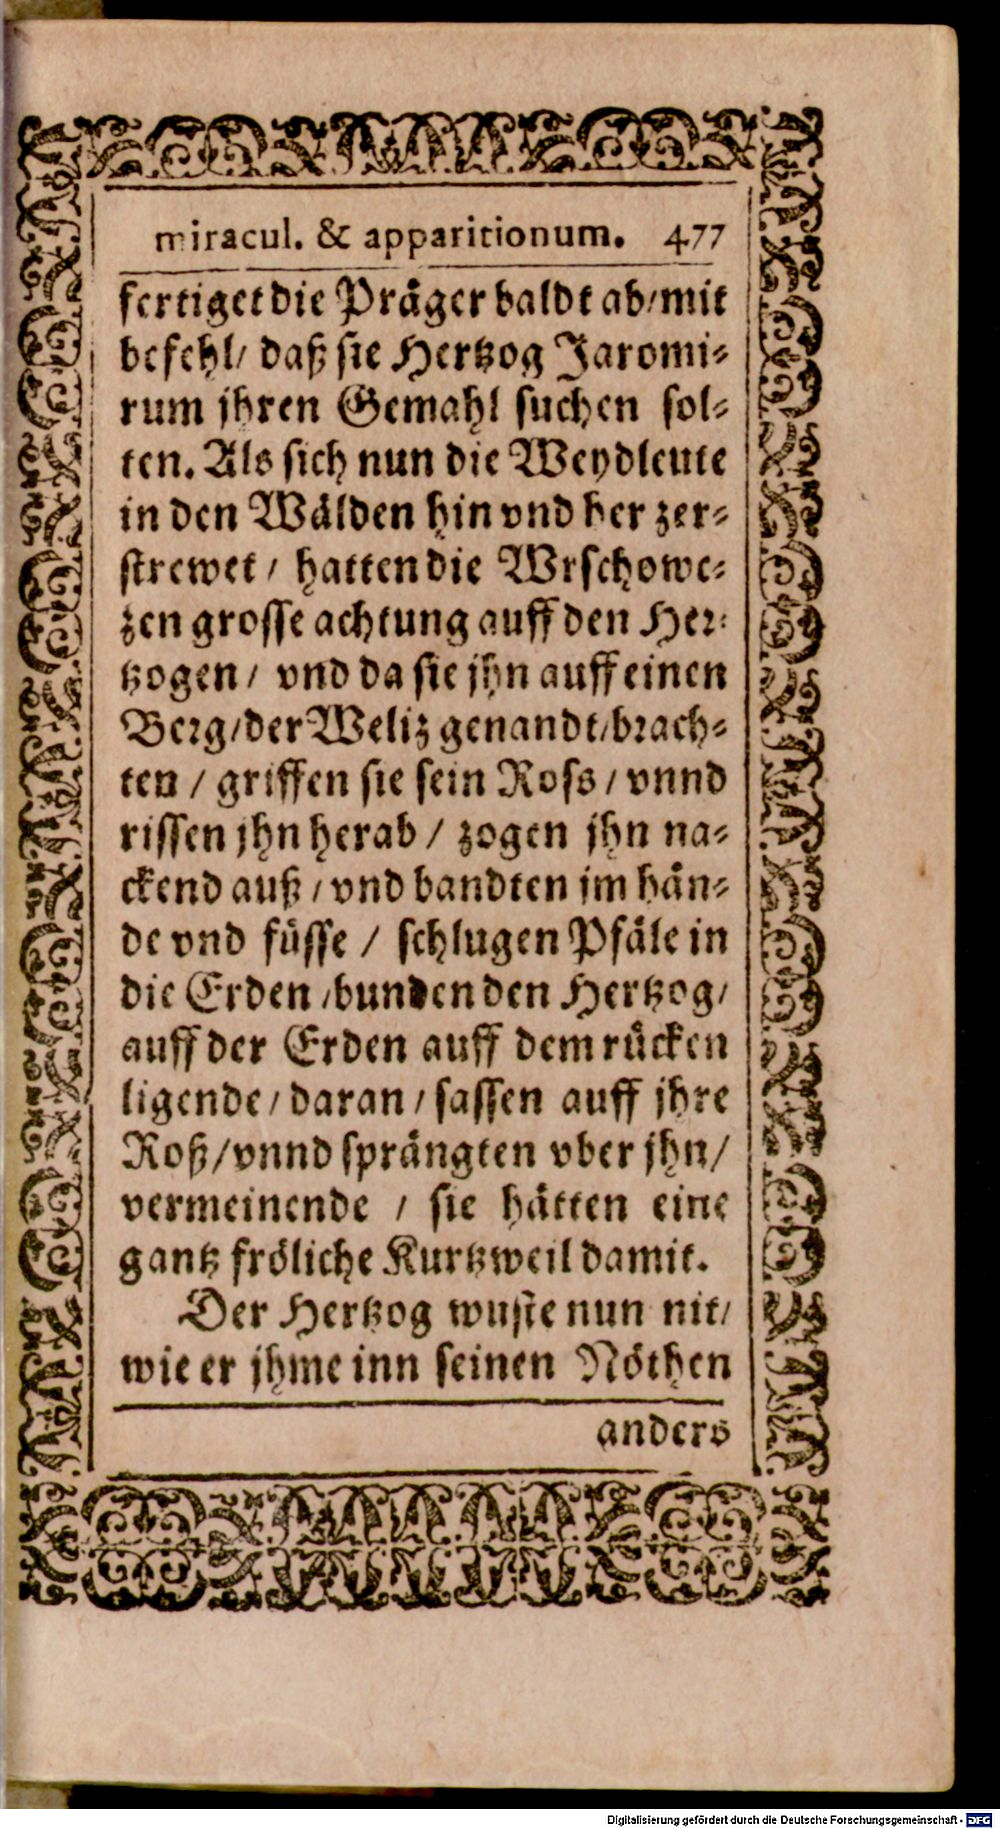 miracul. & apparitionum. 477
fertiget die Präger baldt ab/mit
befehl/ daß sie Hertzog Jaromi-
rum jhren Gemahl suchen sol-
ten. Als sich nun die Weydleute
in den Wälden hin vnd her zer-
strewet / hatten die Wrschowe-
zen grosse achtung auff den Her-
tzogen / vnd da sie jhn auff einen
Berg/der Weliz genandt/brach-
ten / griffen sie sein Ross / vnnd
rissen jhn herab / zogen jhn na-
ckend auß / vnd bandten im hän-
de vnd füsse / schlugen Pfäle in
die Erden /bunden den Hertzog/
auff der Erden auff dem rücken
ligende / daran / sassen auff jhre
Roß/vnnd sprängten vber jhn/
vermeinende / sie hätten eine
gantz fröliche Kurtzweil damit.
Der Hertzog wuste nun nit/
wie er jhme inn seinen Nöthen
anders
Digitalisierung gefördert durch die Deutsche Forschungsgemeinschaft - DFG